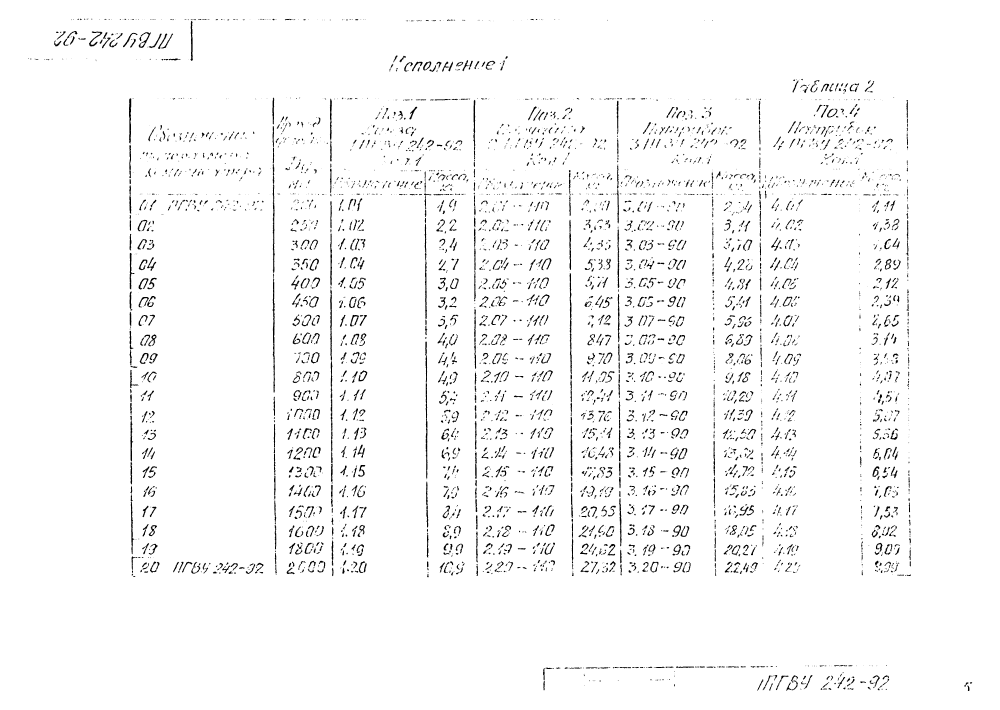 ПГВУ 242-92
Исполнение 1
Таблица 2
Обозначение
Поз.1 Поз.2 Поз.3 Поз.4
Патрубок Патрубок
1 ПГВУ 242-92 2 ПГВУ 242-92 3 ПГВУ 242-92 4 ПГВУ 242-92
Кол.1 Кол.1 Кол.1 Кол.1
Обозначение Масса, кг Обозначение Масса, кг Обозначение Масса, кг Обозначение Масса, кг
01 1.01 1,9 2.01-110 3.01-90 4.01 1,11
02 250 1.02 2,2 2.02-110 3.02-90 3,11 4.02 1,38
03 300 1.03 2,4 2.03-110 3.03-90 3,70 4.03
04 350 1.04 2,7 2.04-110 3.04-90 4,26 4.04 2,89
05 400 1.05 3,0 2.05-110 5,71 3.05-90 4,81 4.05 2,12
06 450 1.06 3,2 2.06-110 6,45 3.06-90 5,41 4.06 2,39
07 500 1.07 3,5 2.07-110 7,12 3.07-90 5,96 4.07 2,65
08 600 1.08 4,0 2.08-110 8,47 3.08-90 6,89 4.08 3,14
09 700 1.09 4,4 2.09-110 9,70 3.09-90 8,06 4.09
10 800 1.10 4,9 2.10-110 11,05 3.10-90 9,18 4.10
11 900 1.11 5,4 2.11-110 12,41 3.11-90 10,29 4.11 4,51
12 1000 1.12 5,9 2.12-110 13,76 3.12-90 11,39 4.12
13 1100 1.13 6,4 2.13-110 15,11 3.13-90 12,50 4.13 5,56
14 1200 1.14 6,9 2.14-110 16,48 3.14-90 4.14 6,04
15 1300 1.15 7,4 2.15-110 17,83 3.15-90 14,72 4.15 6,54
16 1400 1.16 7,9 2.16-110 19,19 3.16-90 15,83 4.16 7,03
17 1500 1.17 8,4 2.17-110 20,55 3.17-90 16,95 4.17 7,53
18 1600 1.18 8,9 2.18-110 21,90 3.18-90 18,05 4.18 8,02
19 1800 1.19 9,9 2.19-110 24,62 3.19-90 20,27 4.19 9,09
20 ПГВУ 242-92 2000 1.20 10,9 2.20-110 27,32 3.20-90 22,49 4.20
ПГВУ 242-92
5